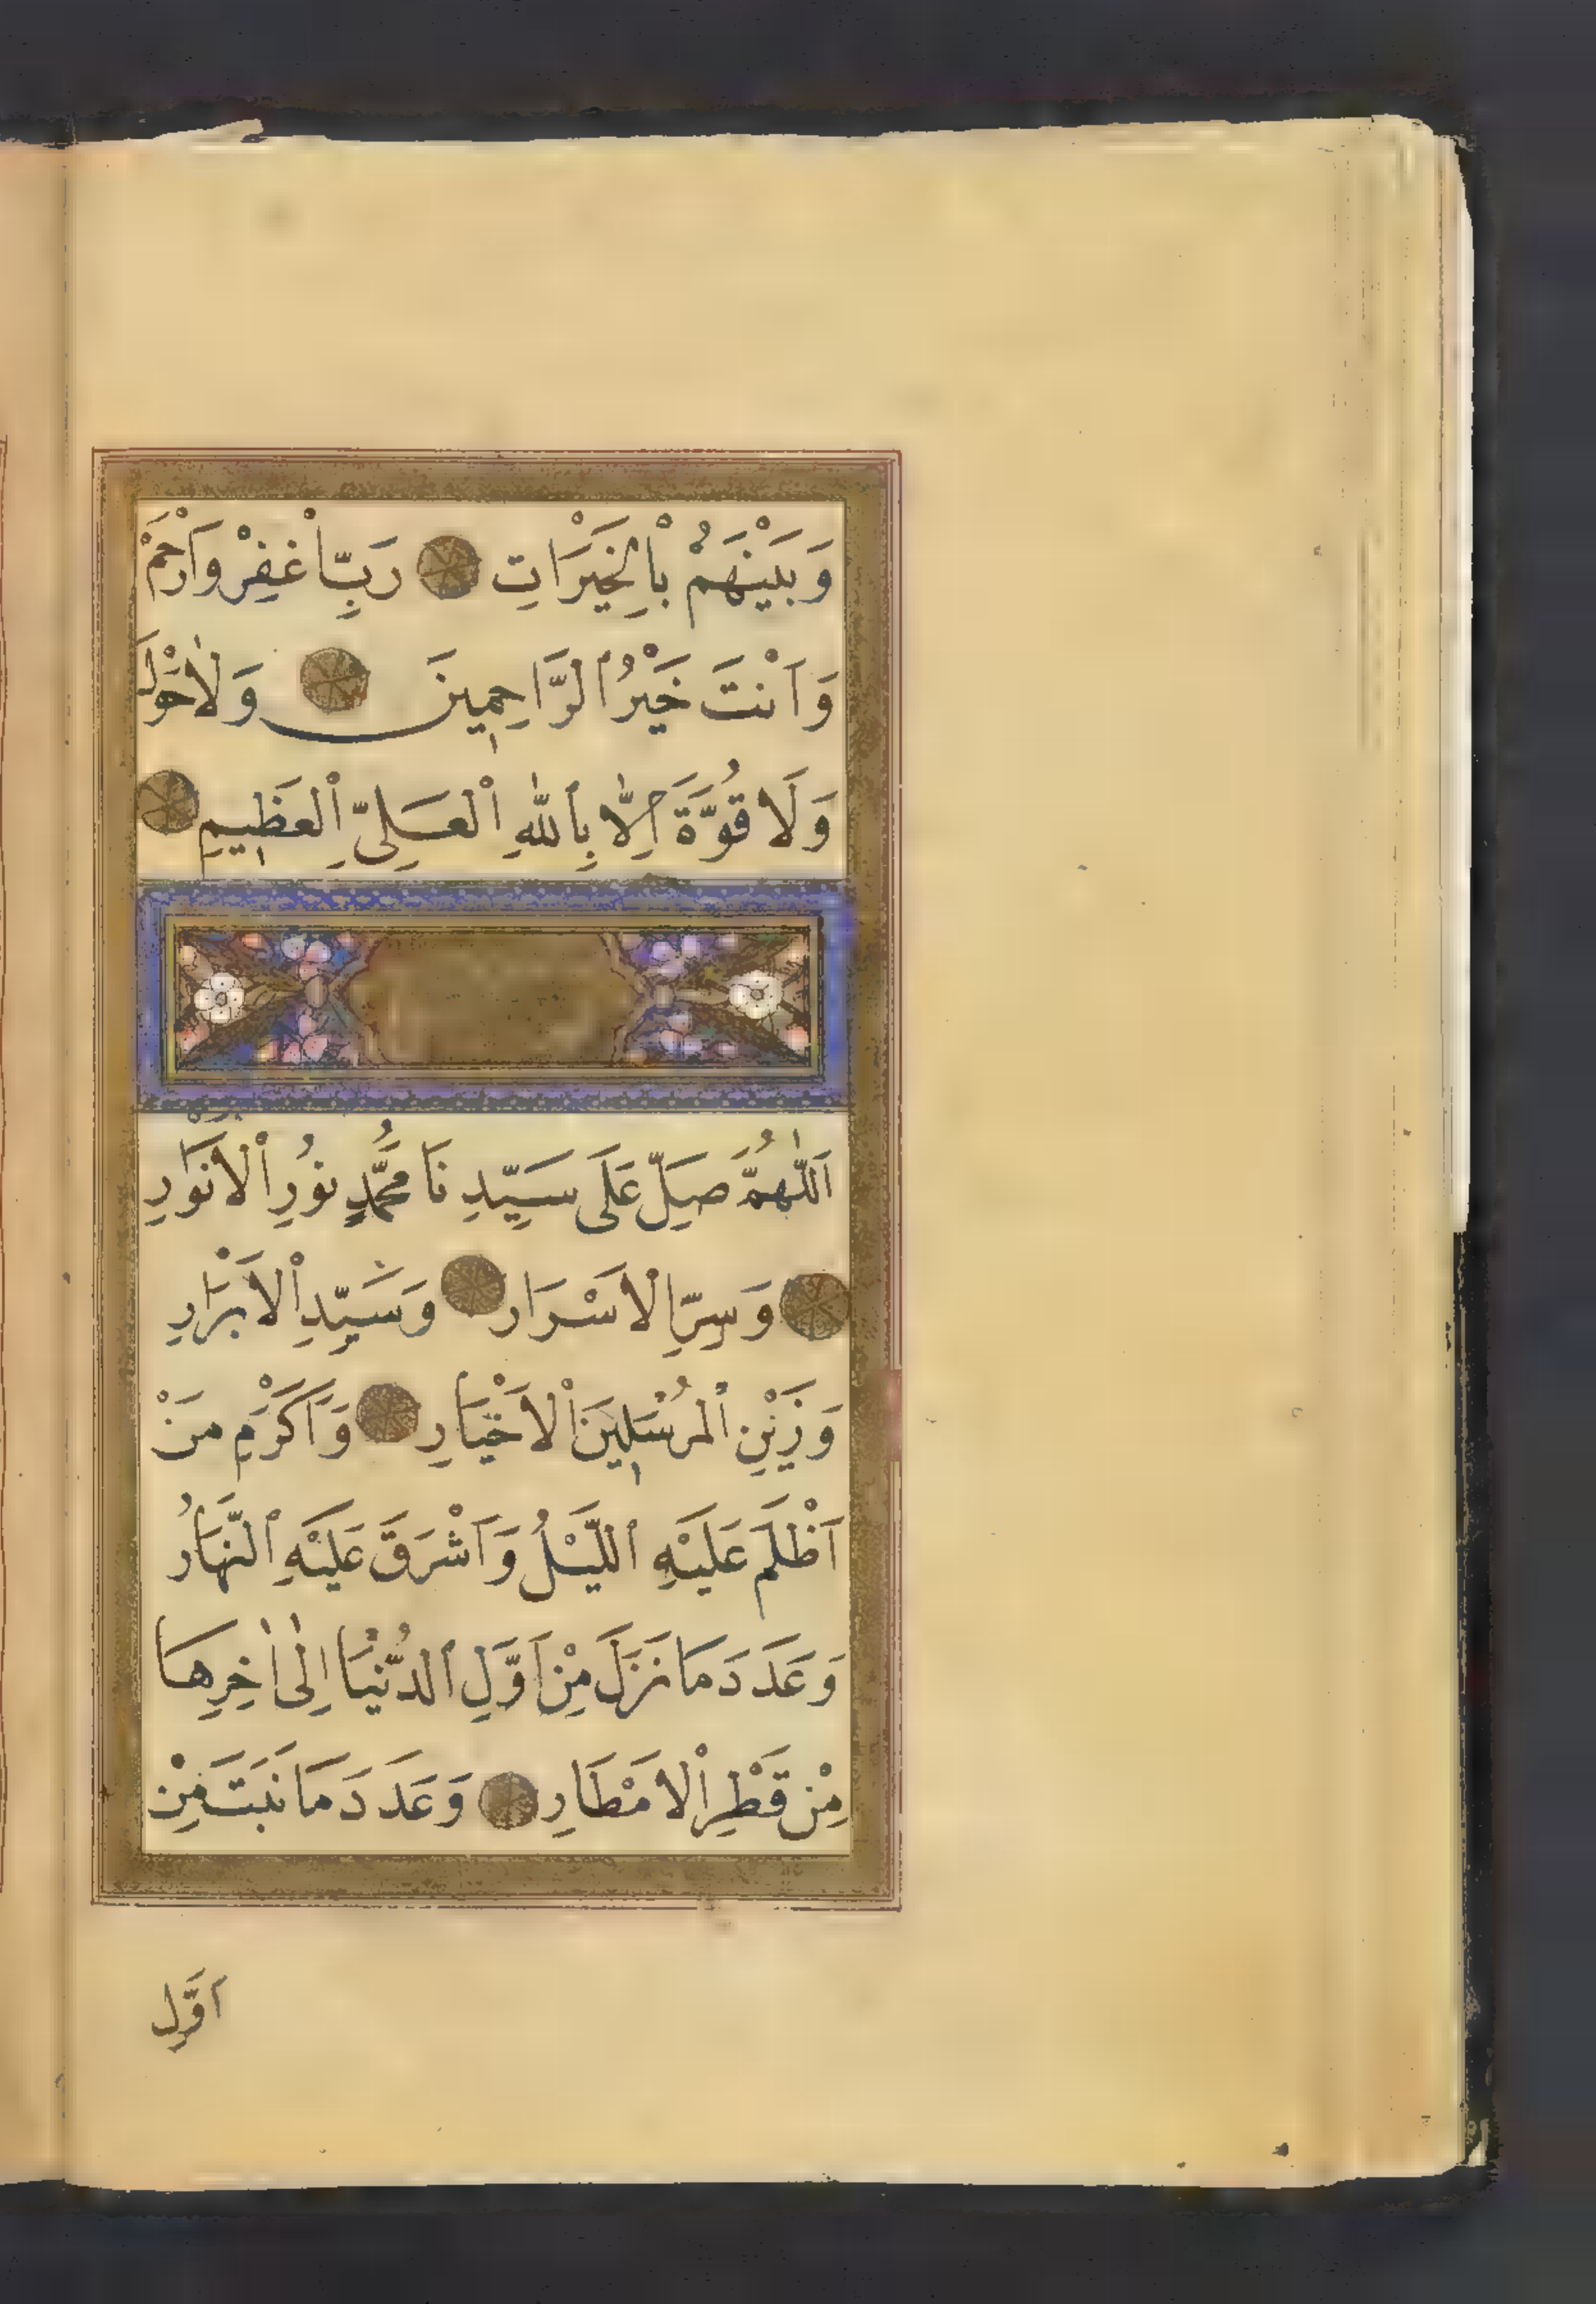 وَبَيْنَهُمْ بِالْخَيْرَاتِ رَبِّ اغْفِرْ وَارْحَمْ
وَاَنْتَ خَيْرُ الرَّاحِمِينَ وَلَا حَوْلَ
وَلَا قُوَّةَ اِلَّا بِاللّٰهِ الْعَلِىِّ الْعَظِيمِ
اَللّٰهُمَّ صَلِّ عَلَى سَيِّدِنَا مُحَمَّدٍ نُورِ الْاَنْوَارِ
وَسِرِّ الْاَسْرَارِ وَسَيِّدِ الْاَبْرَارِ
وَزَيْنِ الْمُرْسَلِينَ الْاَخْيَارِ وَاَكْرَمِ مَنْ
اَظْلَمَ عَلَيْهِ اللَّيْلُ وَاَشْرَقَ عَلَيْهِ النَّهَارُ
وَعَدَدَ مَا نَزَلَ مِنْ اَوَّلِ الدُّنْيَا اِلٰى اٰخِرِهَا
مِنْ قَطْرِ الْاَمْطَارِ وَعَدَدَ مَا نَبَتَ مِنْ
اَوَّلِ